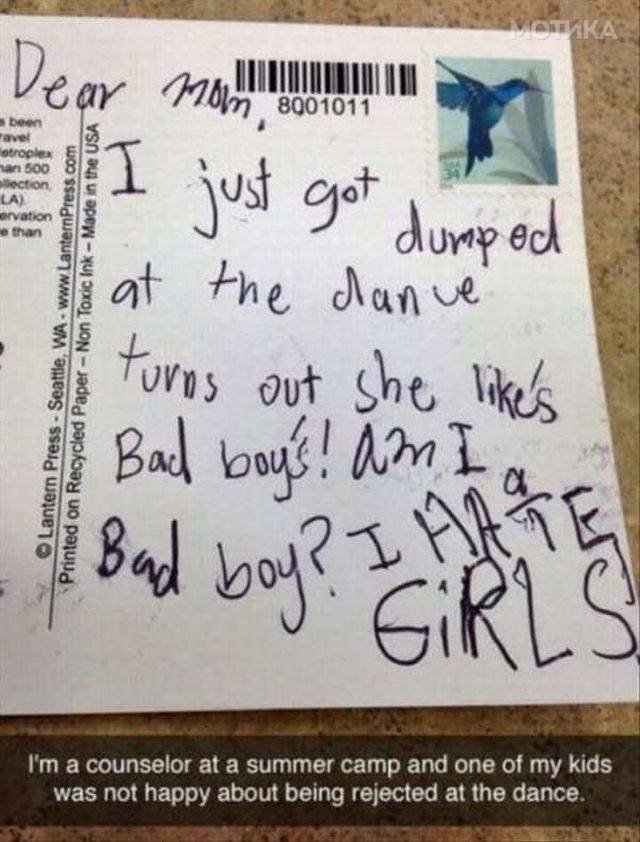 МОТИКА
Dear mom,
8001011
s been
ravel
etroplex
han 500
llection,
LA)
ervation
e than
© Lantern Press - Seattle, WA - www.LanternPress.com
Printed on Recycled Paper – Non Toxic Ink – Made in the USA
I just got
dumped
at the dance
turns out she like's
Bad boy's! Am I a
Bad boy? I HATE
GiRLS
I'm a counselor at a summer camp and one of my kids
was not happy about being rejected at the dance.